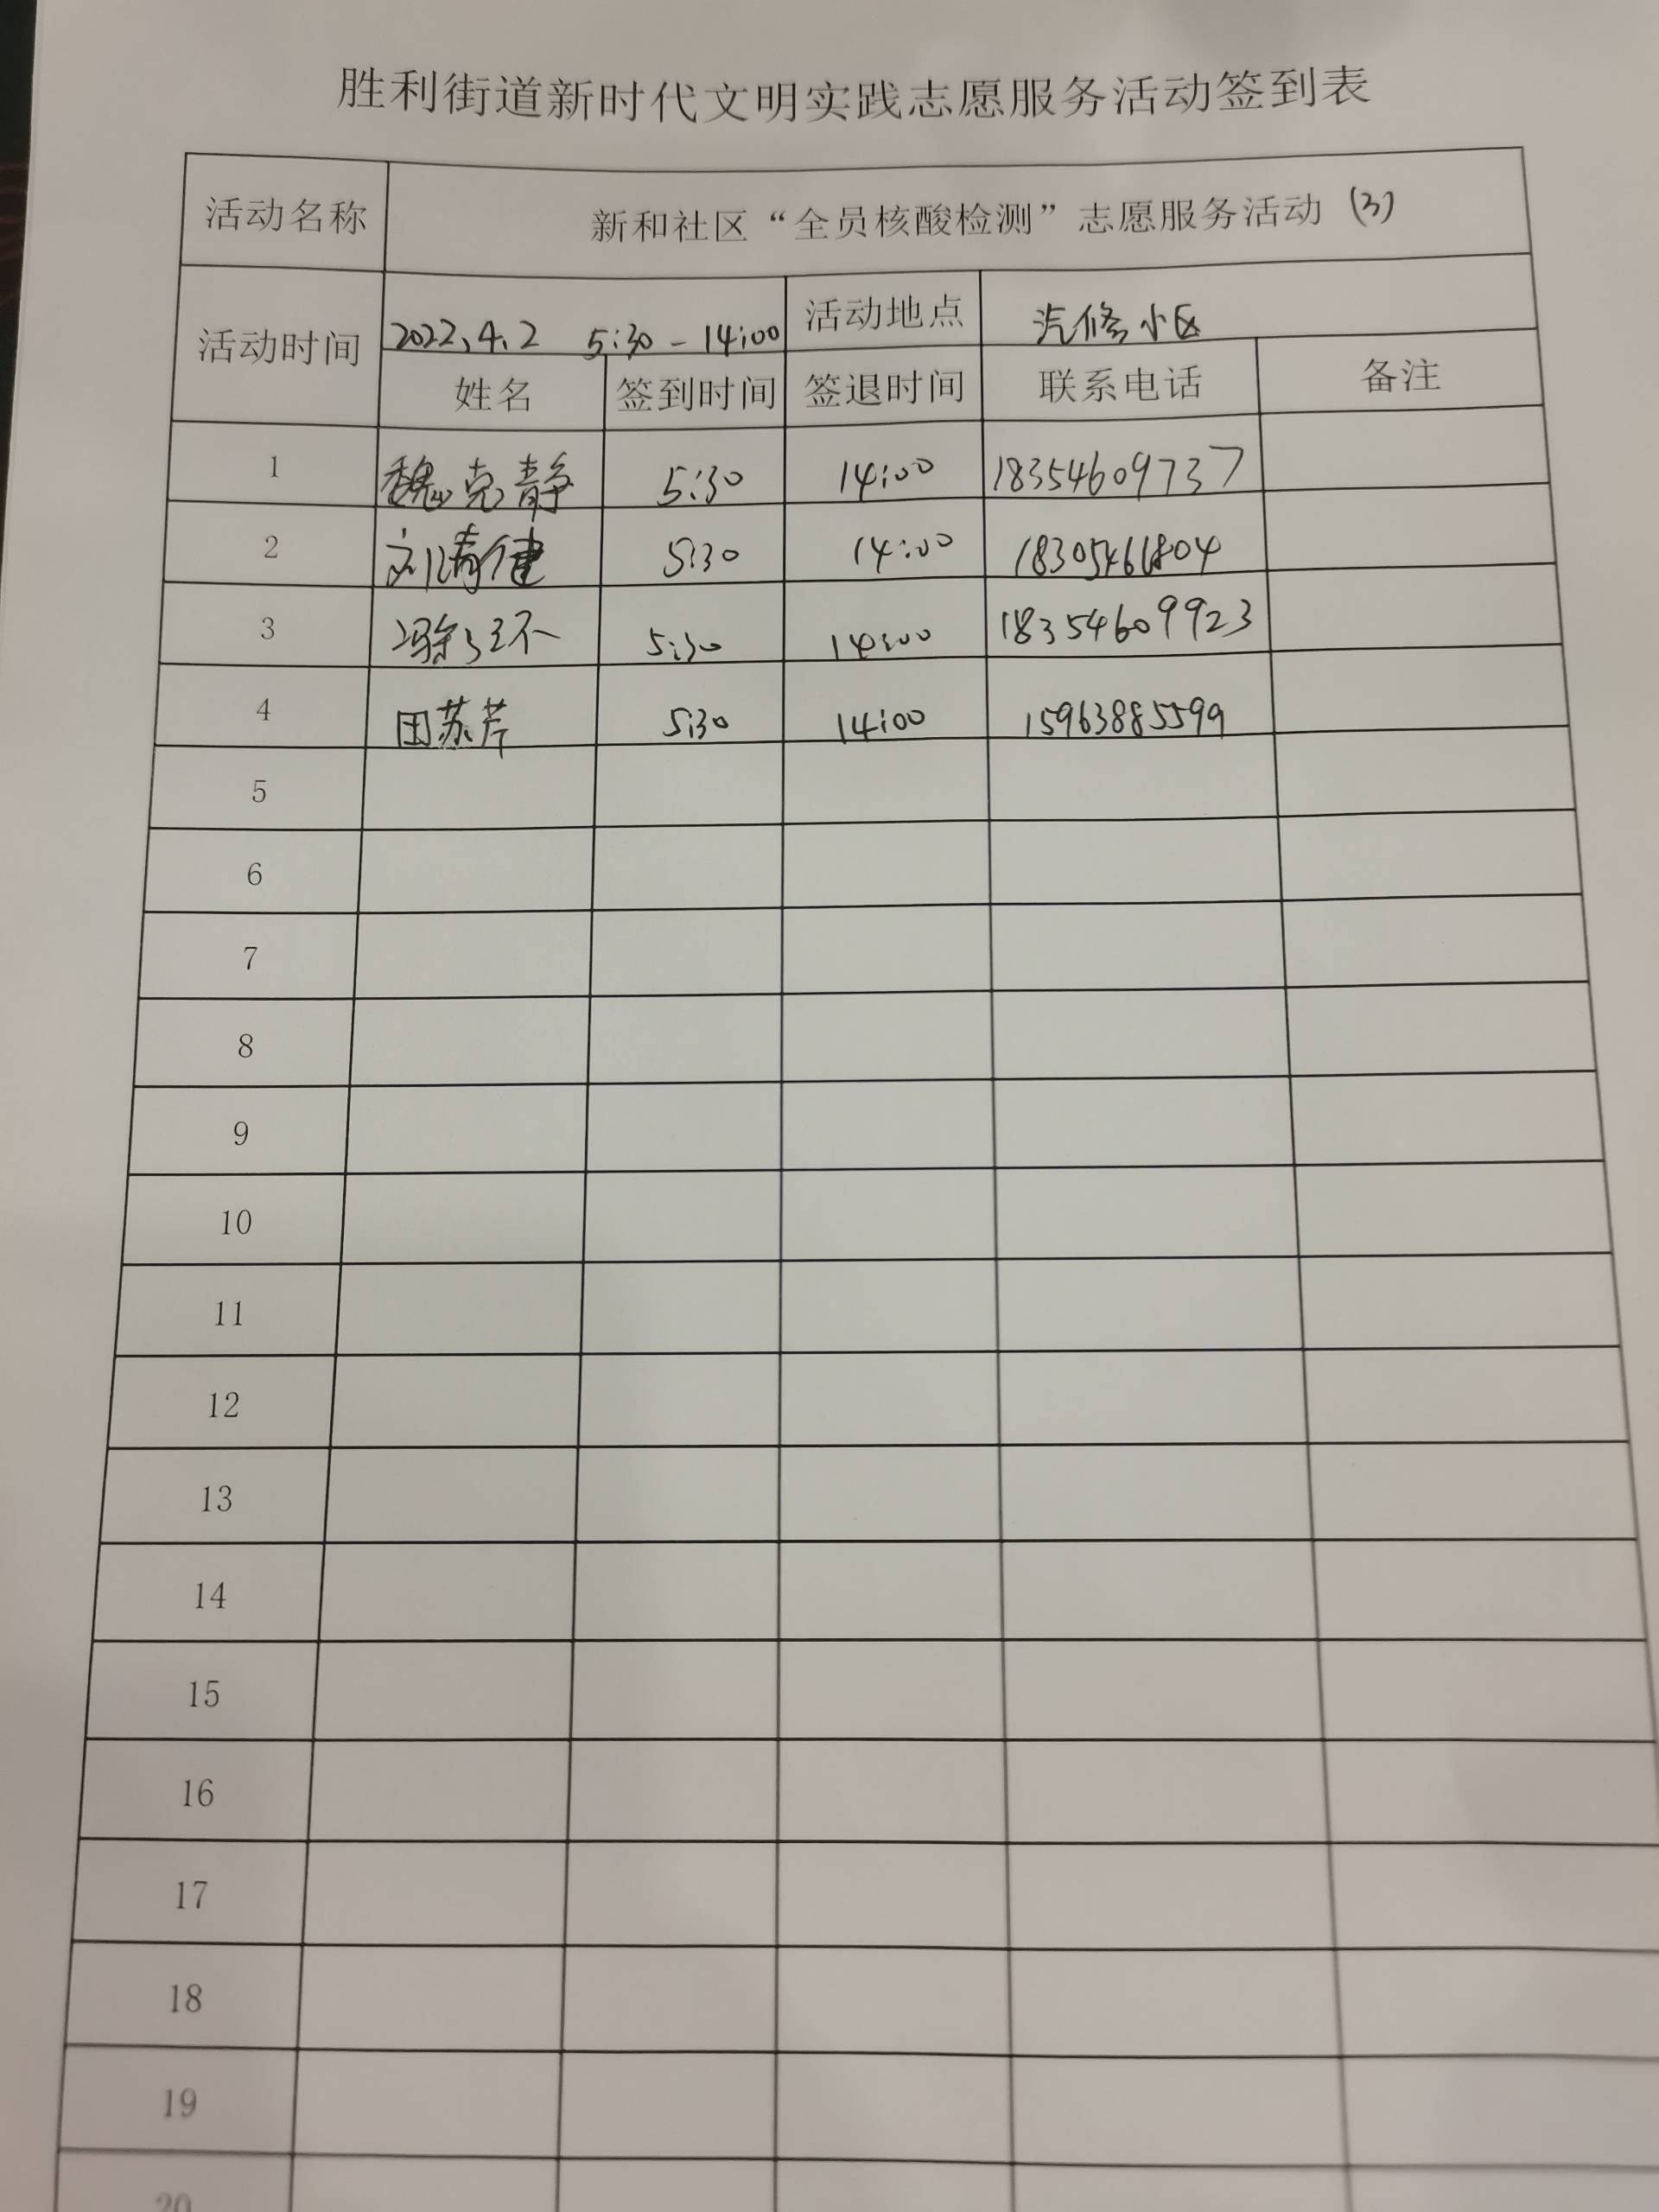 胜利街道新时代文明实践志愿服务活动签到表
活动名称 新和社区“全员核酸检测”志愿服务活动 (3)
活动时间 2022.4.2 5:30-14:00 活动地点 汽修小区
姓名 签到时间 签退时间 联系电话 备注
1 魏克静 5:30 14:00 18354609737
2 刘清健 5:30 14:00
3 5:30 14:00 18354609923
4 田苏芹 5:30 14:00 15963885599
5
6
7
8
9
10
11
12
13
14
15
16
17
18
19
20